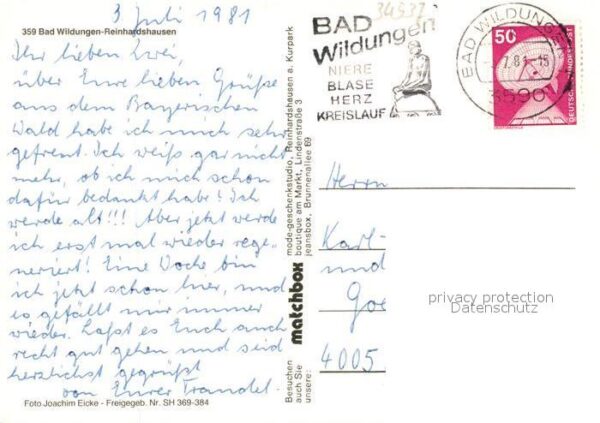 3. Juli 1981
359 Bad Wildungen-Reinhardshausen
Ihr lieben Zwei,
über Eure lieben Grüße
aus dem Bayerischen
Wald habe ich mich sehr
gefreut. Ich weiß gar nicht
mehr, ob ich mich schon
dafür bedankt habe! Ich
werde alt!!! Aber jetzt werde
ich erst mal wieder rege-
neriert! Eine Woche bin
ich jetzt schon hier, und
es gefällt mir immer
wieder. Laßt es Euch auch
recht gut gehen und seid
herzlichst gegrüßt
von Eurer Traudel.
Foto Joachim Eicke - Freigegeb. Nr. SH 369-384
Besuchen
auch Sie
unsere:
matchbox
mode-geschenkstudio, Reinhardshausen a. Kurpark
boutique am Markt, Lindenstraße 3
jeansbox, Brunnenallee 69
34537
BAD
Wildungen
NIERE
BLASE
HERZ
KREISLAUF
BAD WILDUNGEN
7.81-15
3590
50
DEUTSCHE BUNDESPOST
Herrn
Karl-
und
Goe
4005
privacy protection
Datenschutz